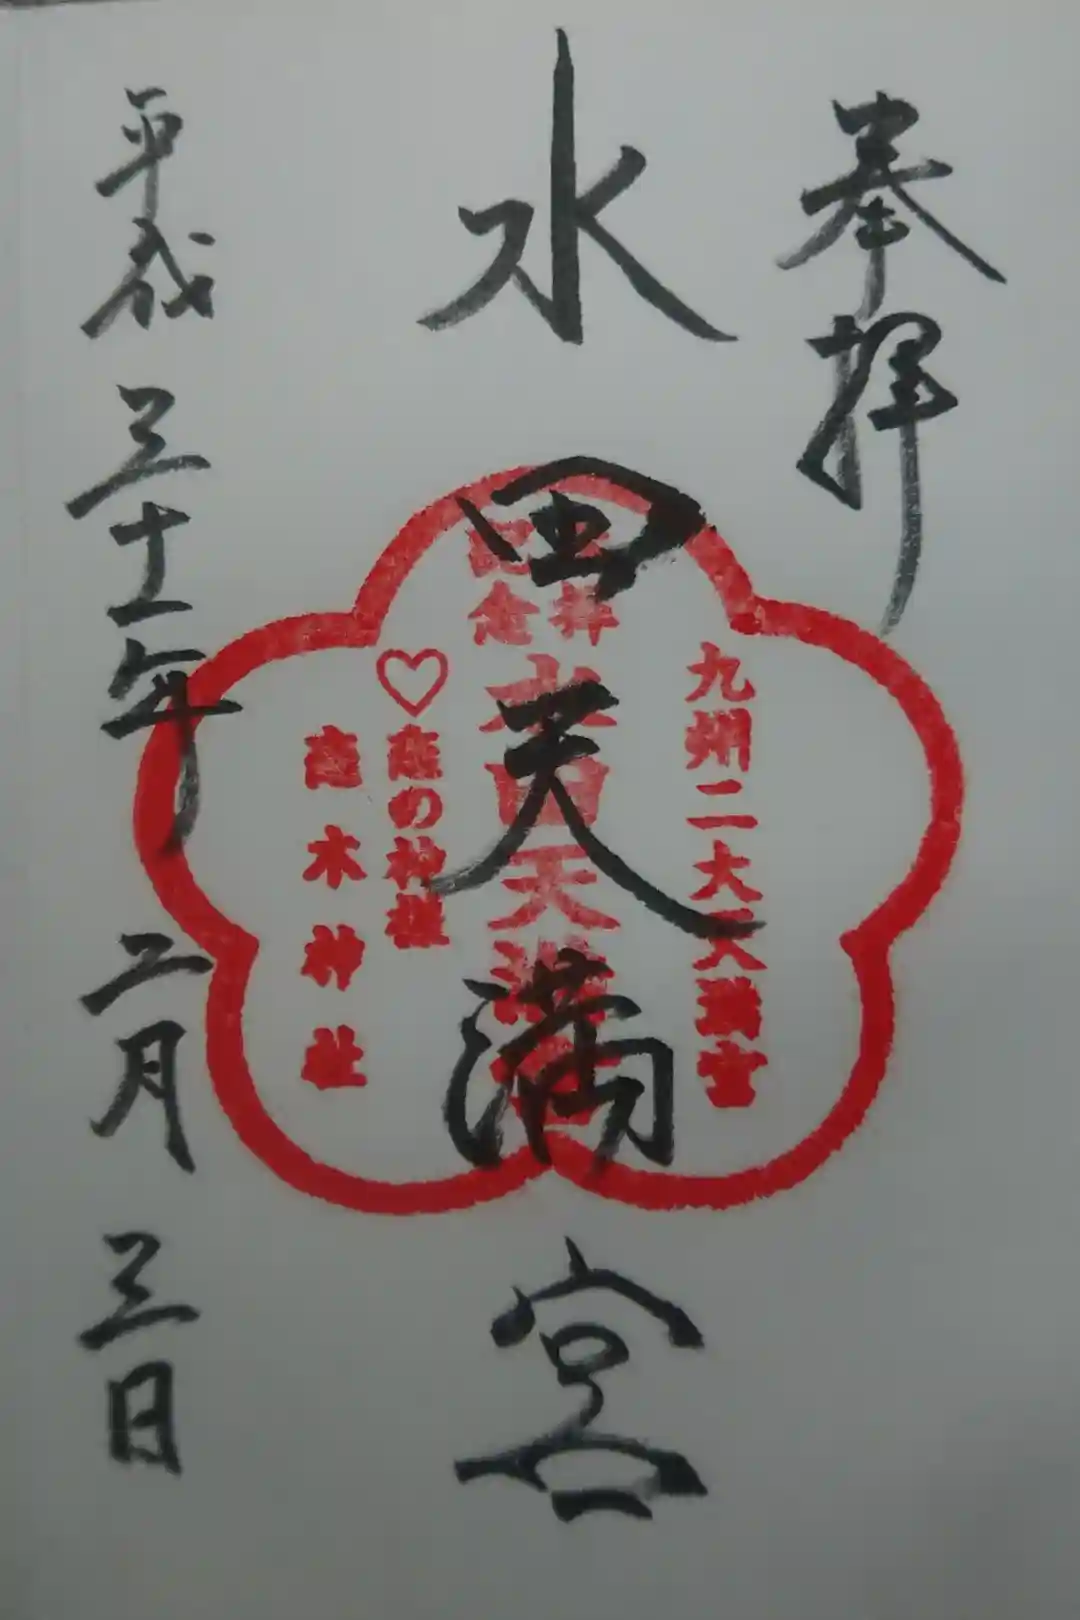 奉拝
水田天満宮
平成三十一年二月三日
九州二大天満宮
参拝
記念
水田天満宮
♡恋の神社
恋木神社